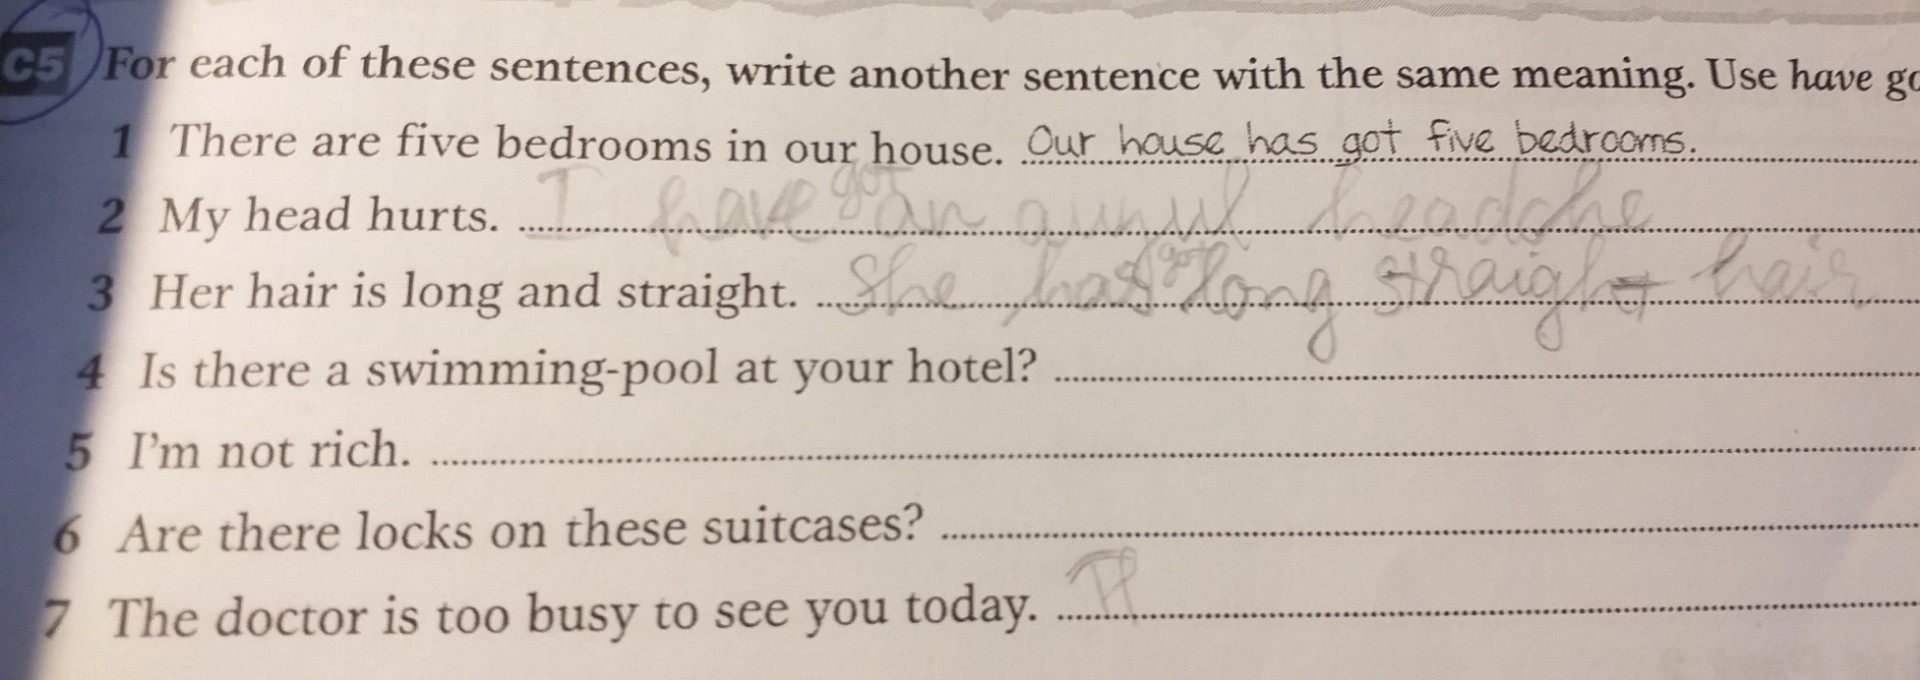 C5 For each of these sentences, write another sentence with the same meaning. Use have go
1 There are five bedrooms in our house. Our house has got five bedrooms.
2 My head hurts. I have got an headache
3 Her hair is long and straight. She has got long straight hair
4 Is there a swimming-pool at your hotel?
5 I'm not rich.
6 Are there locks on these suitcases?
7 The doctor is too busy to see you today. Th